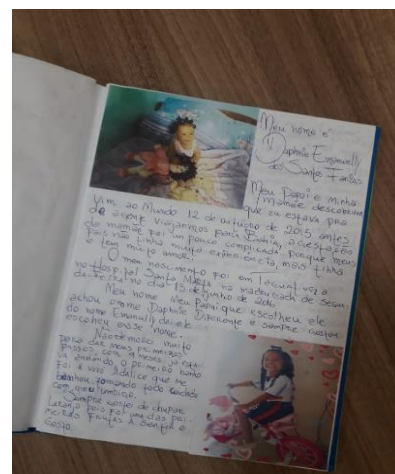 Meu nome é
Daphnie Emanuelly
dos Santos Farias
Meu Papai e minha
Mamãe descobriram
que eu estava pra
Vim ao Mundo 12 de outubro de 2015 antes
de agente viajarmos para Bahia, a gestação
da mamãe foi um pouco complicada, porque meus
pais não tinha muito experiência, mais tinha
e tem muito amor!
O meu nascimento foi em
no Hospital Santo na madrugada de segun
no dia 13 de junho de 2016
Meu nome Meu Papai que escolheu ele
achou o nome Daphnie Diferente e sempre gostou
do nome Emanuelly daí ele
escolheu esse nome.
Não demorou muito
para dar meus primeiros
passos com 9 meses já esta
va andando o primeiro banho
foi a vovó que me
banhou, tomando todo cuidado
com meu umbigo.
Sempre gostei de chupar
laranja pois foi uma das pri
meiras frutas à sentir o
gosto.